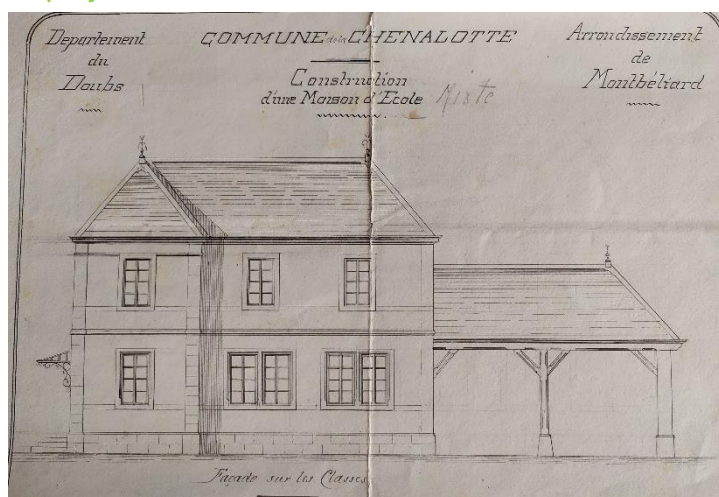 Département
du
Doubs
COMMUNE de la CHENALOTTE
Construction
d'une Maison d'Ecole Mixte
Arrondissement
de
Montbéliard
Façade sur les Classes